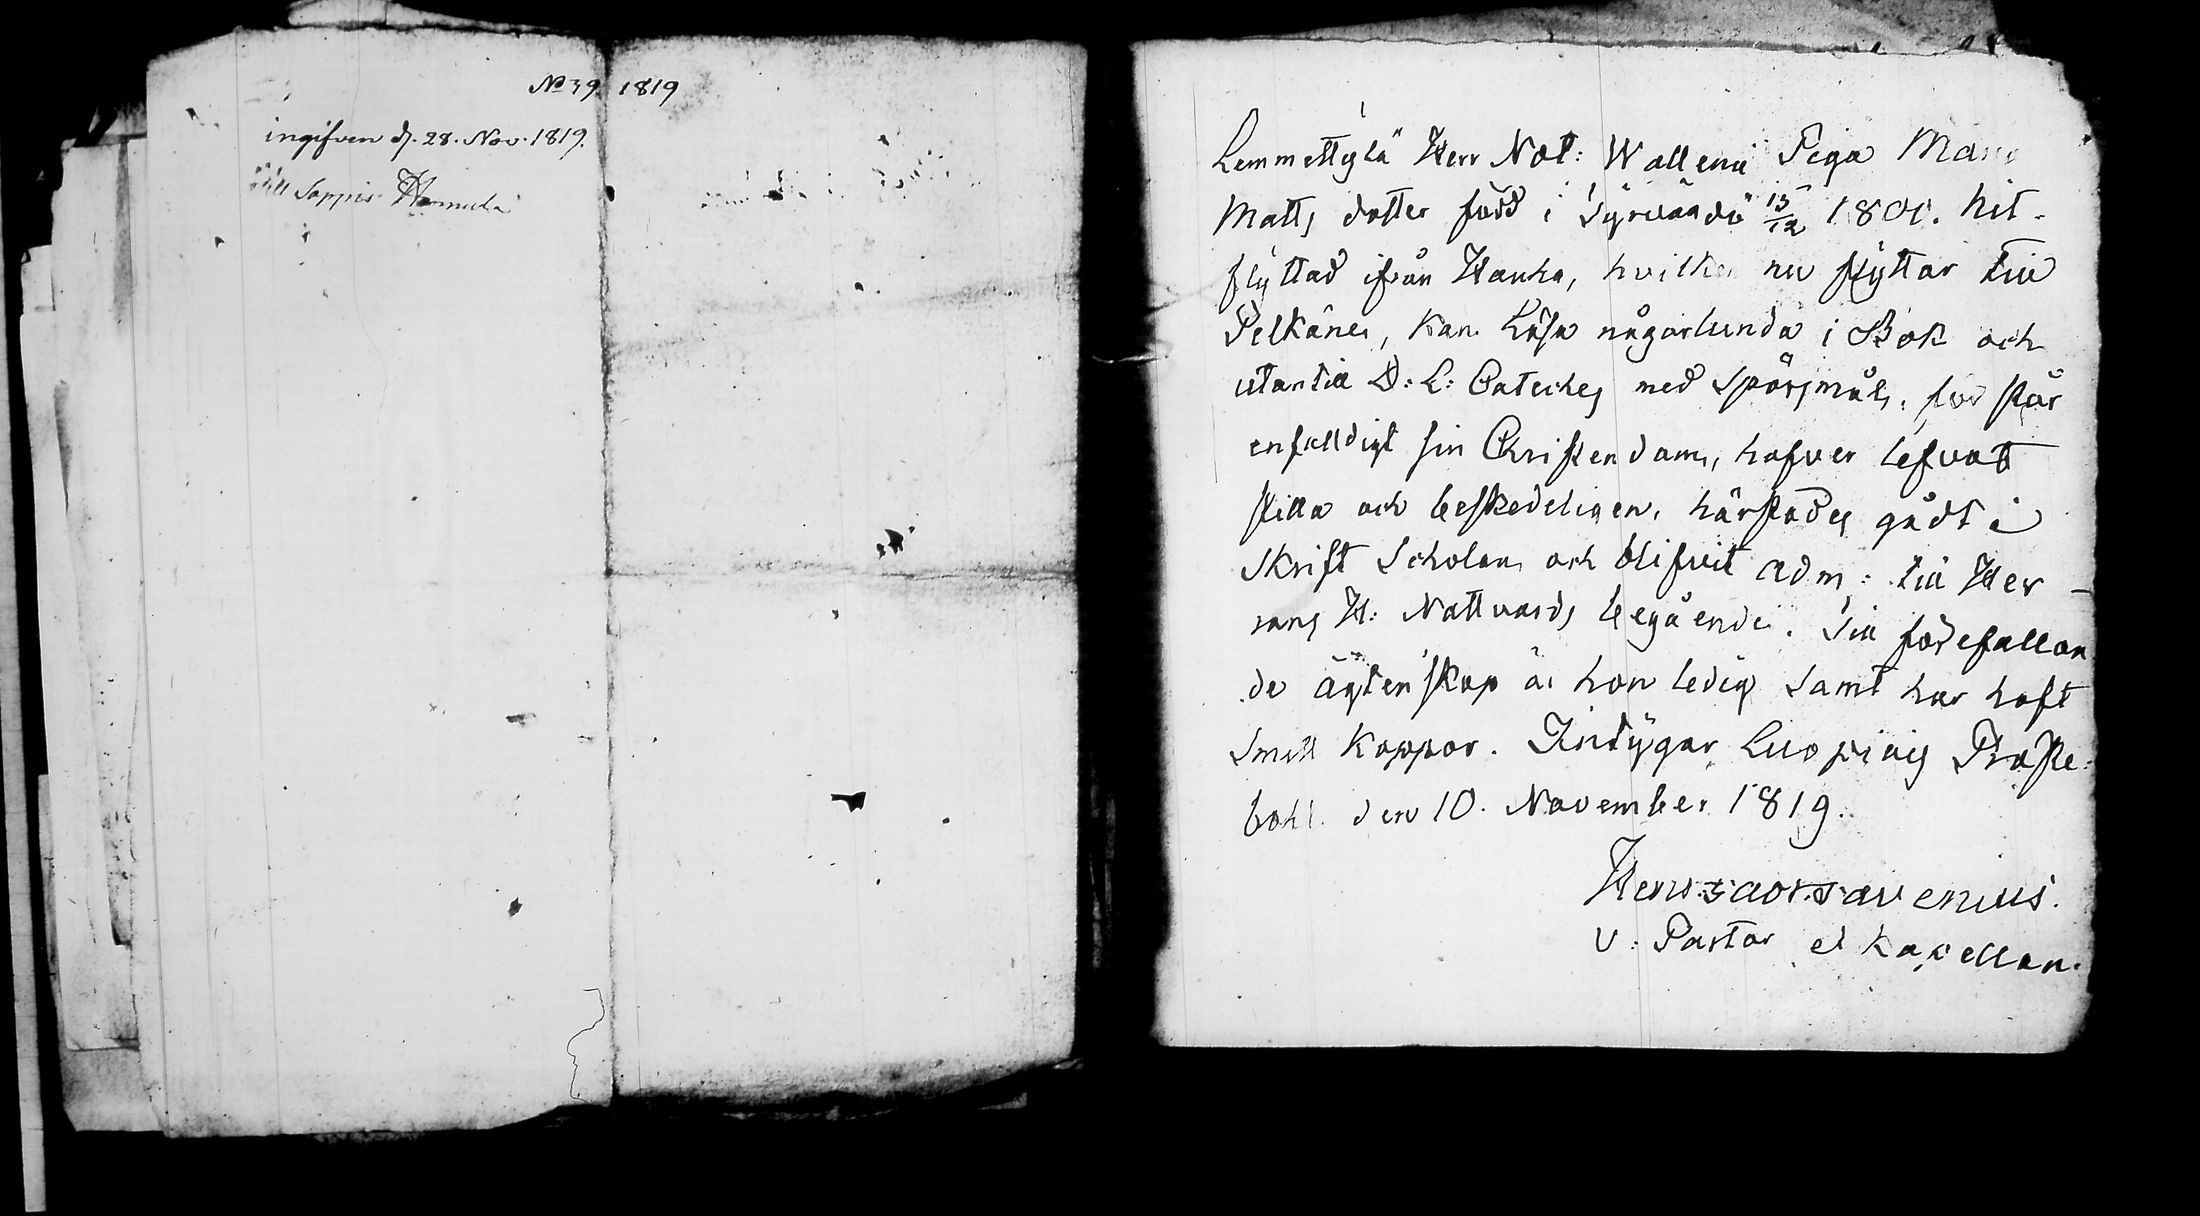 No 39 1819
ingifven d. 28. Nov. 1819.
till Sappis Hannula
Lemmettylä Herr Not: Wallenii Piga Maria
Matts dotter född i Syrvändö 13/12 1801. hit-
flyttad ifrån Hauho, hvilken nu flyttar till
Pelkäne, kan läsa någorlunda i Bok och
utantill D: L: Cateches med Spörsmåls, förstår
enfalldigt sin Christendom, hafver lefvat
stilla och beskedeligen, härstädes gådt i
Skrift Scholan och blifvit adm: till Her-
rans H: Nattvards begående. Till förefallan
de ägtenskap är hon ledig samt har haft
Smitt Koppor. Intygar Luopiois Präste-
bohl den 10. November 1819.
Henr: Favorinus.
V: Pastor et Kapellan.